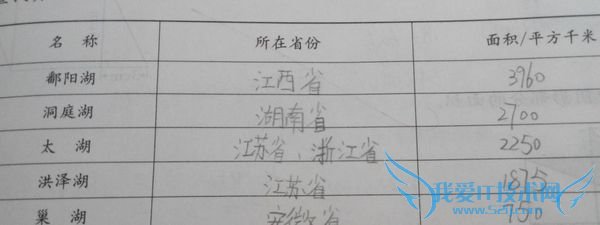 名 称 所在省份 面积/平方千米
鄱阳湖 江西省 3960
洞庭湖 湖南省 2700
太 湖 江苏省、浙江省 2250
洪泽湖 江苏省 1875
巢 湖 安徽省 750
我爱IT技术网